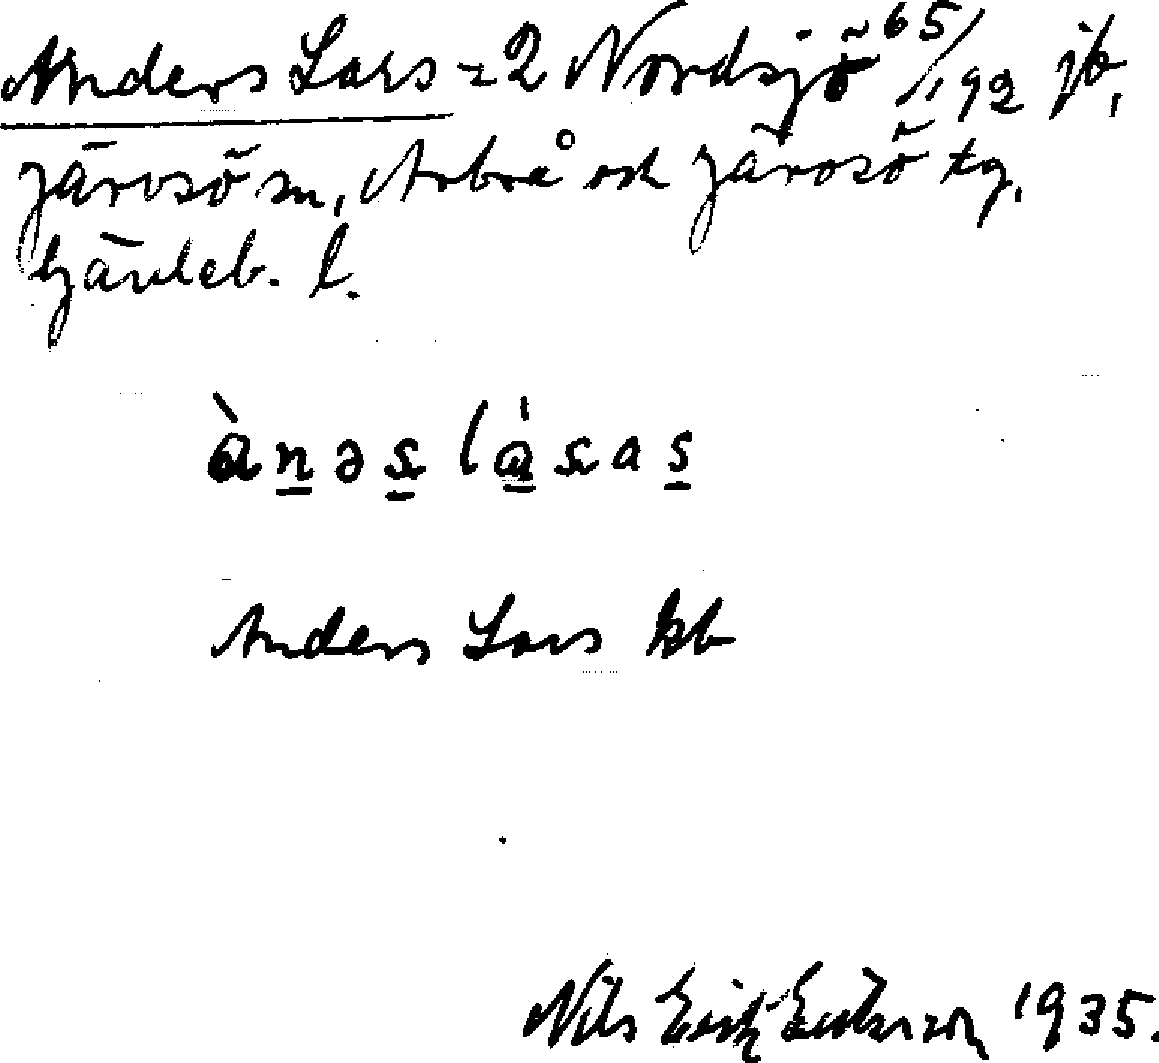 Anders Lars = 2 Nordsjö 65/192 jb,
Järvsö sn, Arbrå och Järvsö tg,
Gävleb. l.
àn̲əs̲ lá̲sas̲
Anders Lars kb
Nils Erik Eriksson 1935.